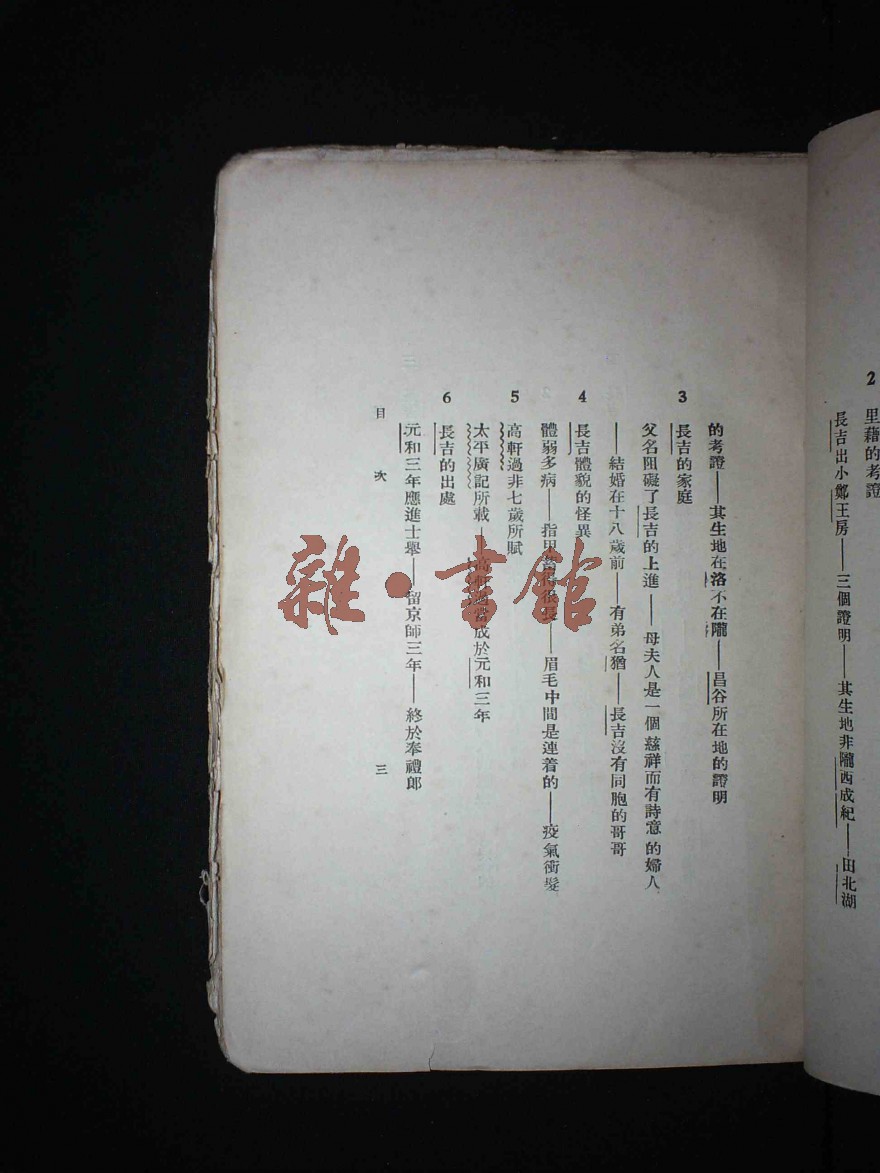 2
里藉的考證
長吉出小鄭王房——三個證明——其生地非隴西成紀——田北湖
的考證——其生地在洛不在隴——昌谷所在地的證明
3
長吉的家庭
父名阻礙了長吉的上進——母夫人是一個慈祥而有詩意的婦人
——結婚在十八歲前——有弟名猶——長吉沒有同胞的哥哥
4
長吉體貌的怪異
體弱多病——指甲長——眉毛中間是連着的——疫氣衝髮
5
高軒過非七歲所賦
太平廣記所載——高軒過當成於元和三年
6
長吉的出處
元和三年應進士舉——留京師三年——終於奉禮郎
目次
三
雜·書館